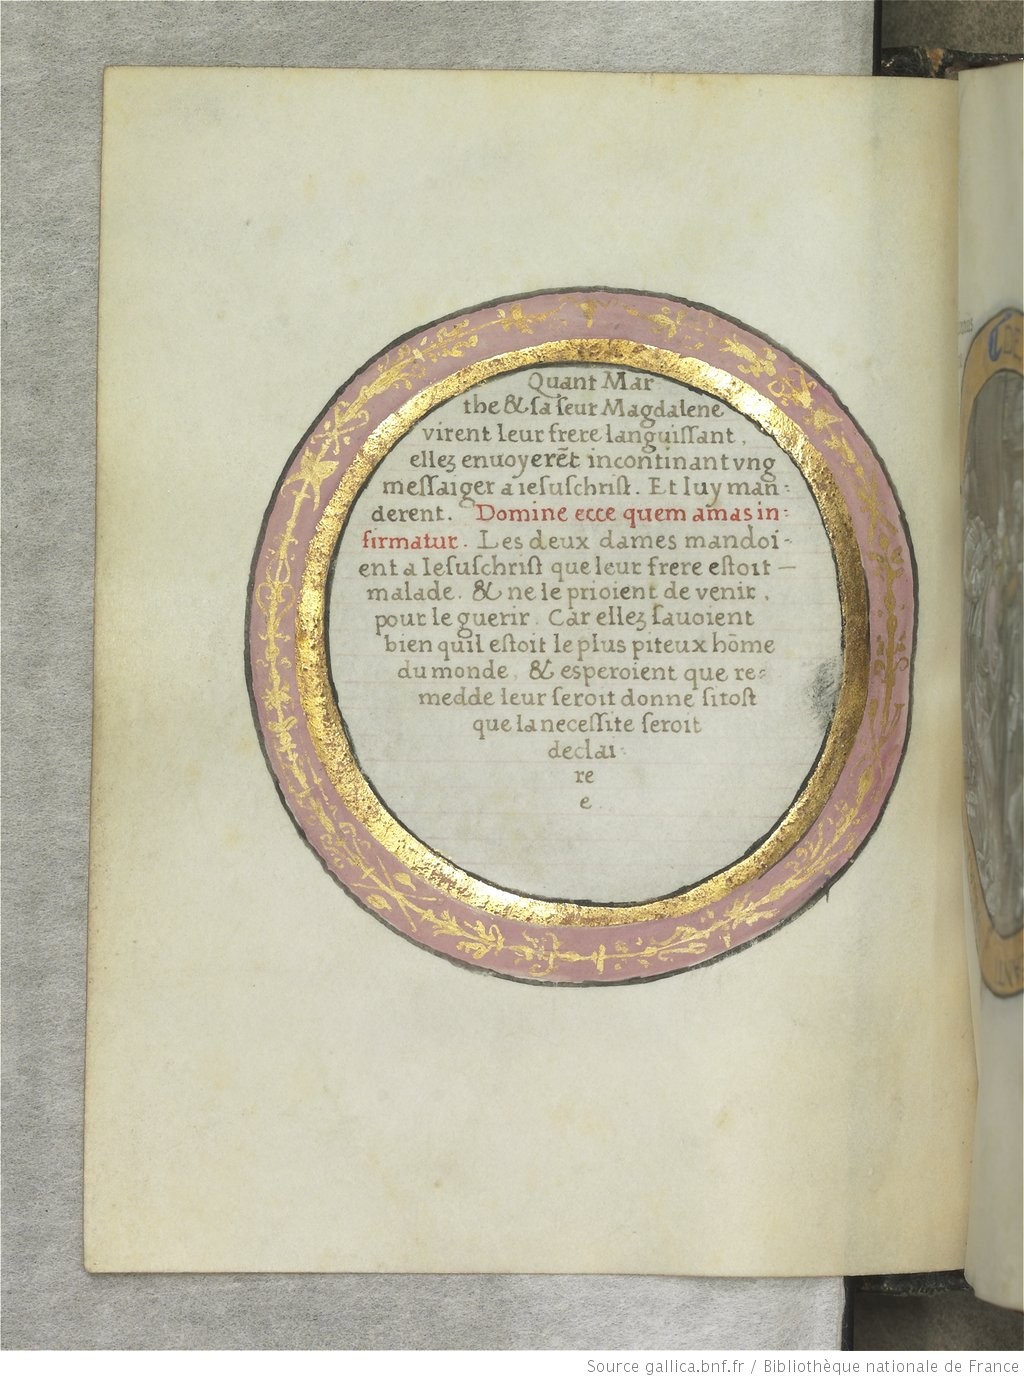 Quant Mar
the & sa seur Magdalene
virent leur frere languissant,
ellez enuoyerēt incontinant vng
messaiger a iesuschrist. Et luy man:
derent. Domine ecce quem amas in:
firmatur. Les deux dames mandoi-
ent a Iesuschrist que leur frere estoit —
malade. & ne le prioient de venir,
pour le guerir. Car ellez sauoient
bien quil estoit le plus piteux hōme
du monde, & esperoient que re:
medde leur seroit donne sitost
que la necessite seroit
declai:
re
e
Source gallica.bnf.fr / Bibliothèque nationale de France